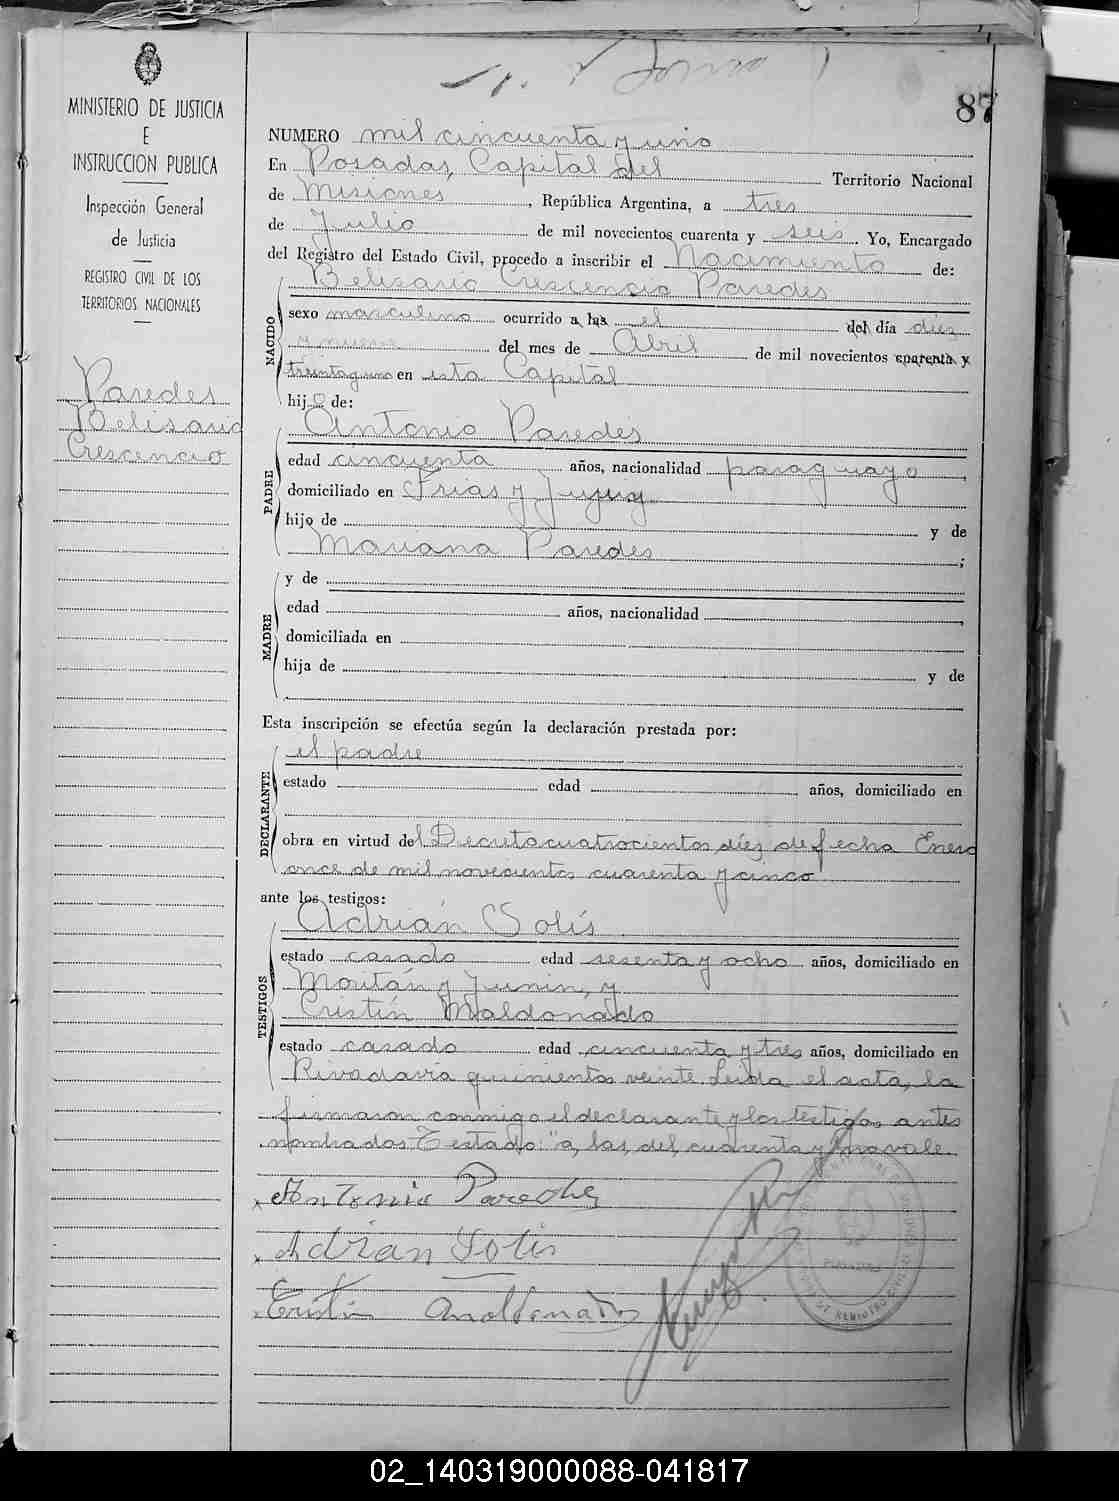 87
MINISTERIO DE JUSTICIA
E
INSTRUCCION PUBLICA
Inspección General
de Justicia
REGISTRO CIVIL DE LOS
TERRITORIOS NACIONALES
Paredes
Belisario
Crescencio
NUMERO mil cincuenta y uno
En Posadas, Capital del Territorio Nacional
de Misiones, República Argentina, a tres
de Julio de mil novecientos cuarenta y seis. Yo, Encargado
del Registro del Estado Civil, procedo a inscribir el Nacimiento de:
Belisario Crescencio Paredes
NACIDO
sexo masculino ocurrido a las el del día diez
y nueve del mes de Abril de mil novecientos cuarenta y
treinta y uno en esta Capital
hijo de:
Antonio Paredes
PADRE
edad cincuenta años, nacionalidad paraguayo,
domiciliado en Frias y Jujuy
hijo de y de
Mariana Paredes ;
MADRE
y de
edad años, nacionalidad ,
domiciliada en
hija de y de
Esta inscripción se efectúa según la declaración prestada por:
el padre
DECLARANTE
estado edad años, domiciliado en
obra en virtud del Decreto cuatrocientos diez de fecha Enero
once de mil novecientos cuarenta y cinco
ante los testigos:
Adrián Solís
TESTIGOS
estado casado edad sesenta y ocho años, domiciliado en
y Junin, y
Cristín Maldonado
estado casado edad cincuenta y tres años, domiciliado en
Rivadavia quinientos veinte. Leida el acta, la
firmaron conmigo el declarante y los testigos antes
nombrados. Testado: "a, las, del, cuarenta y" no vale.
Antonio Paredes
Adrian Solis
Cristin Maldonado
02_140319000088-041817